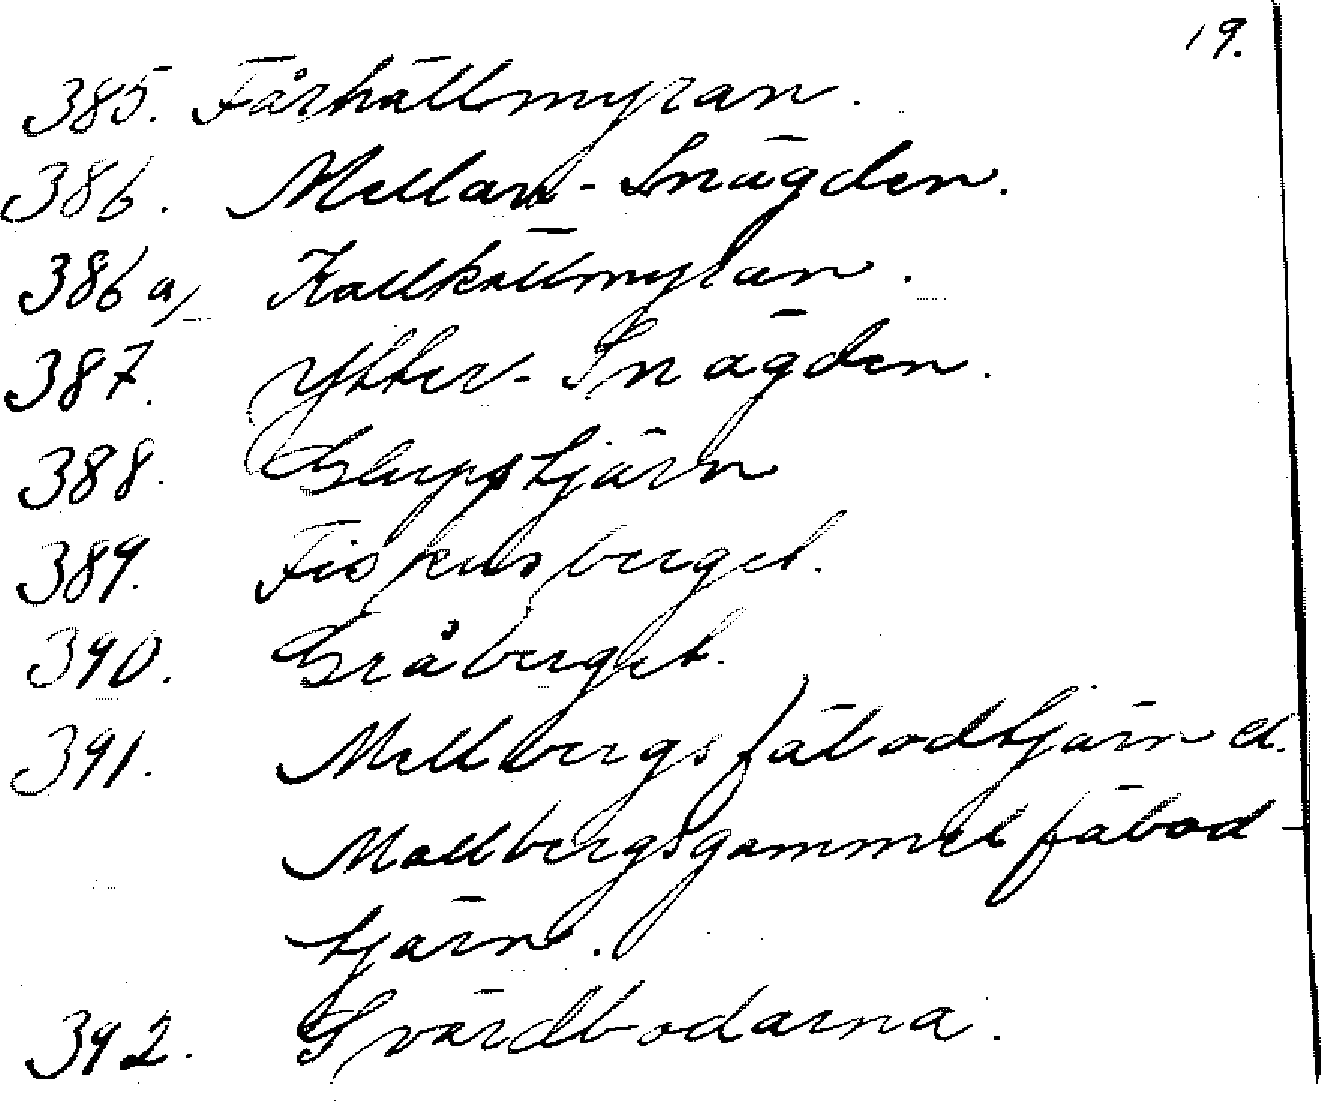 19.
385. Fårhällmyran.
386. Mellan-Snägden.
386 a) Kallkällmyran.
387. Ytter-Snägden.
388. Glupstjärn
389. Fiskusberget.
390. Gråberget.
391. Mellbergsfäbodtjärn el.
Mellbergsgammelfäbod
tjärn.
392. Svärdbodarna.